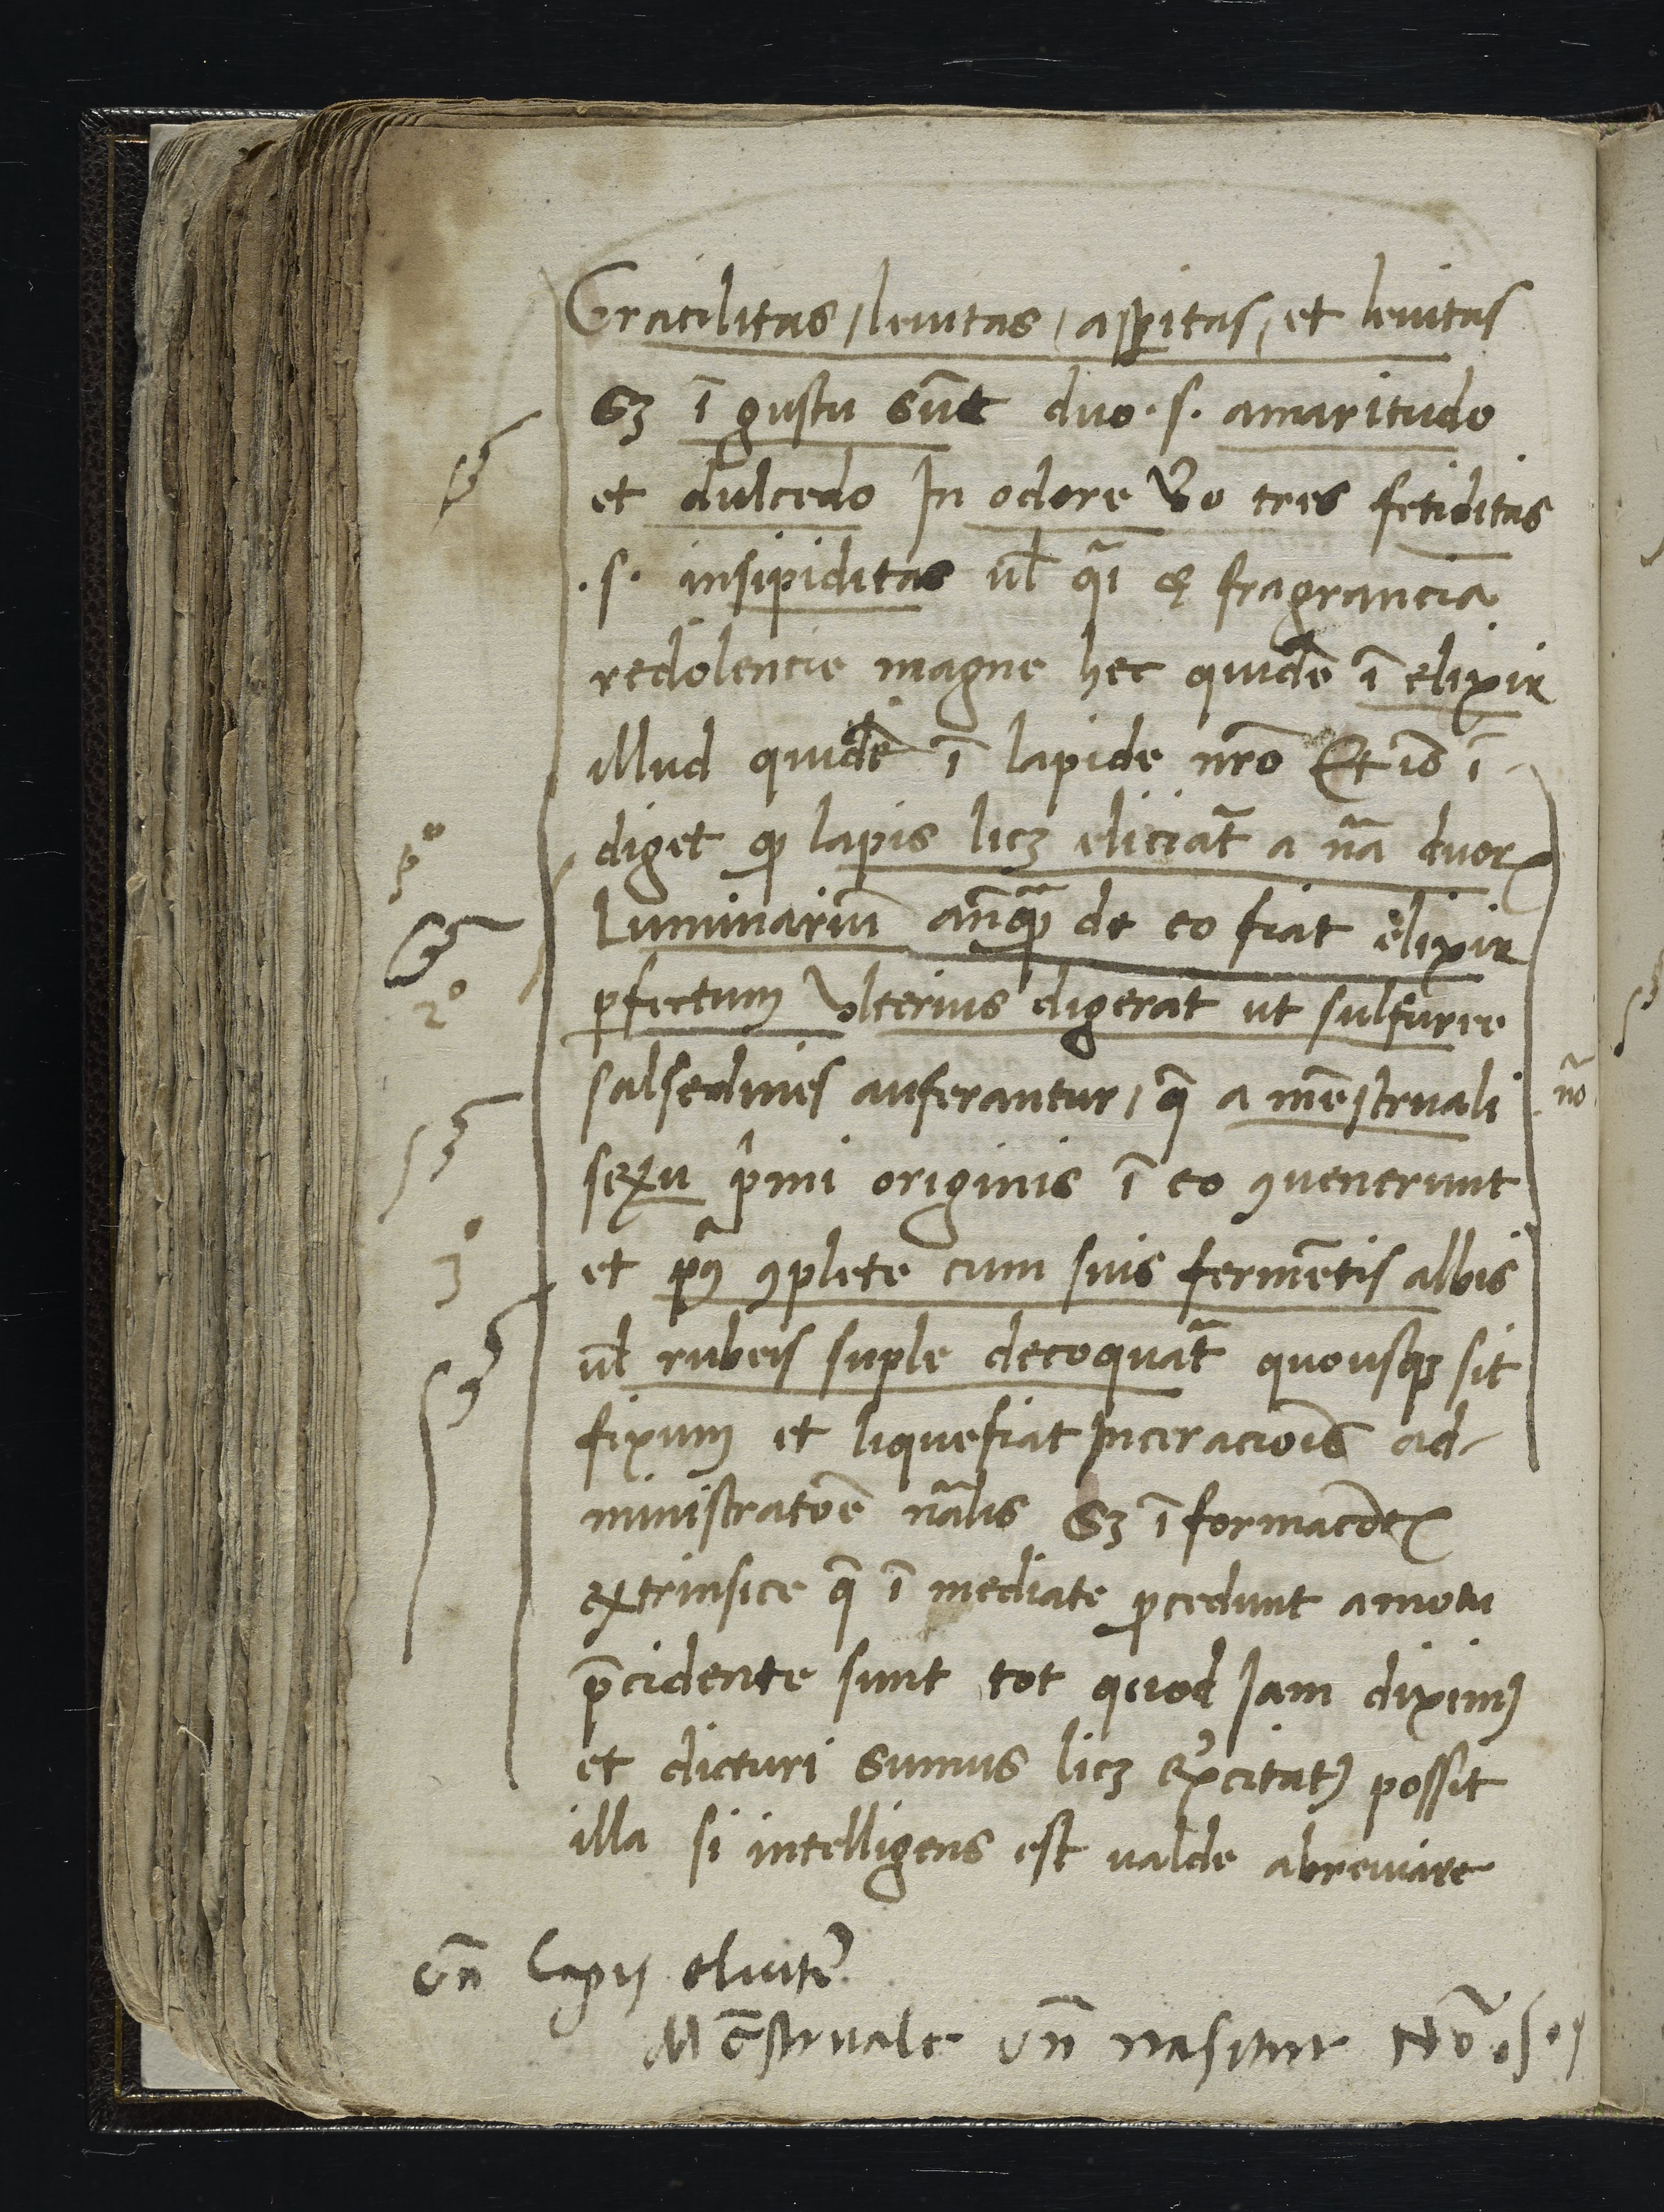 Gracilitas / leuitas / aspitas / et lenitas
Sꝫ ī gustu sūt duo .s. amaritudo
et dulcedo In odore v̄o tres fetiditas
.s. insipiditas ul̄ q̄i ę fragrancia
redolencie magne hec quidē ī elixir
illud quidē ī lapide nr̄o Et iō ī
diget ꝙ lapis licꝫ eliciat̄ a nā duorꝝ
Luminariū anq̄ꝫ de eo fiat elixir
ꝑfectum vlterius digerat ut sulfuree
salsedines auferantur / q̄ a mēstruali
sexu p̄mi originis ī eo ꝯuenerunt
et pꝰ ꝯplete cum suis fermētis albis
ul̄ rubeis suple decoquat̄ quousqꝫ sit
fixum et liquefiat Inceraciōis ad
ministratoē nālis Sꝫ īformacōēꝝ
extrinsice q̄ ī mediate ꝓcedunt amotu
p̄cidente sunt tot quod Iam diximꝰ
et dicturi sumus licꝫ exʼcitatꝰ possit
illa si intelligens est ualde abreuiare
1º
2º
3º
nō
vn̄ lapis elicitʼ
Mēstruale vn̄ nasitur Nō .s.